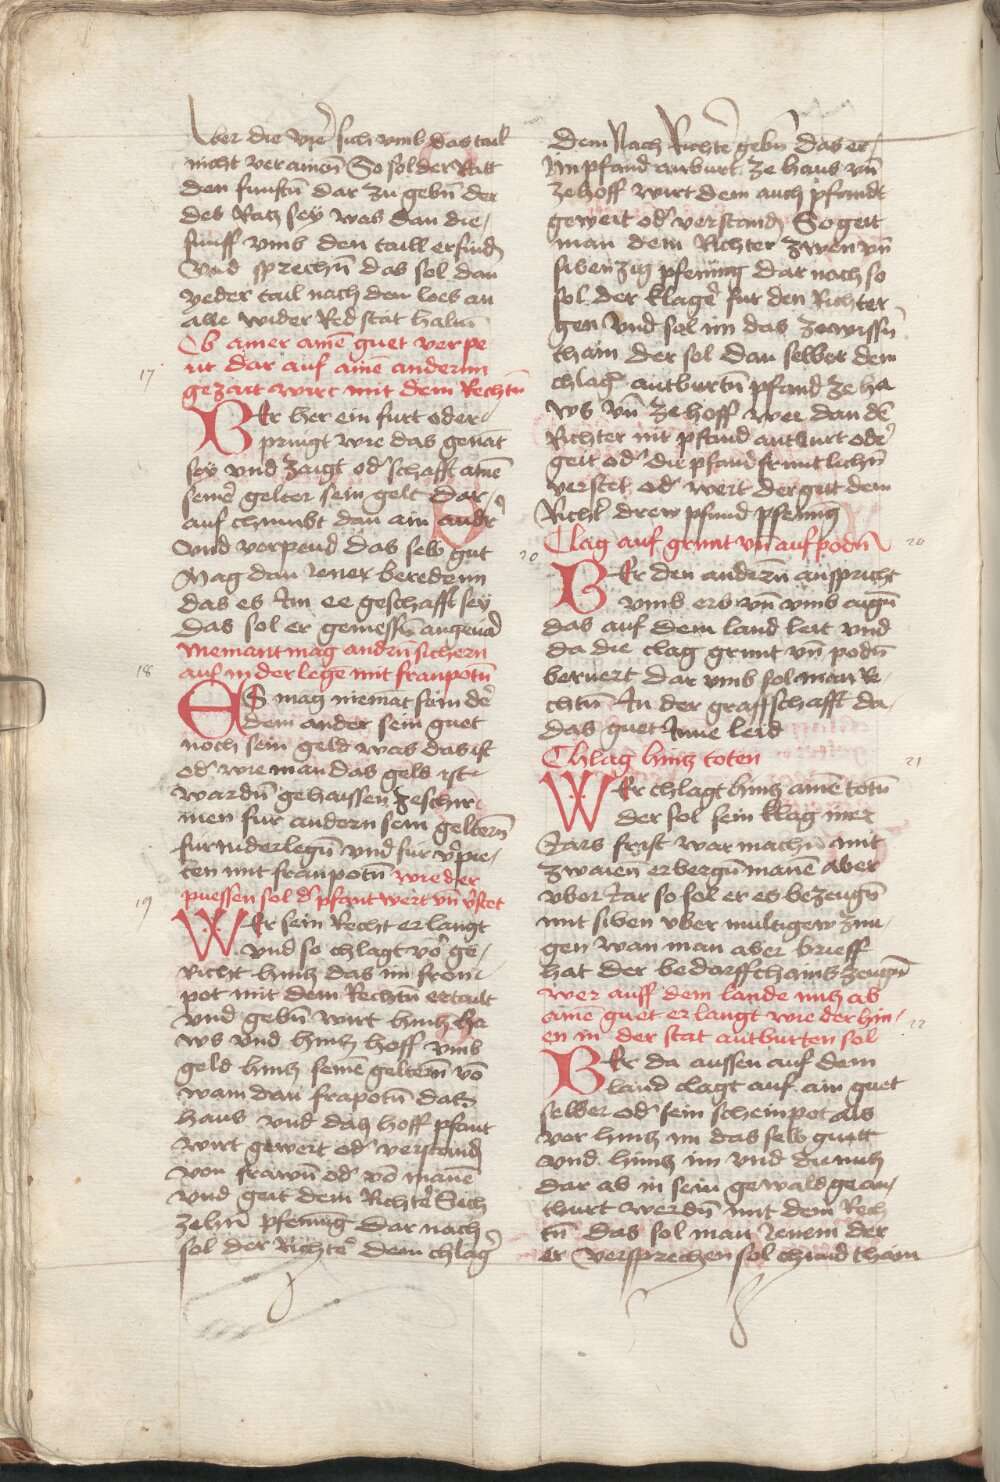 Aber die vier sich vmb das tail
nicht verainen So sol der Ratt
den funften dar zu geben der
des Ratz sey was dan die
funff vmb den taill erfinden
Vnd sprechen das sol dan
yeder tail nach dem loes an
alle wider Red stat halten
Ob ainer amē guet verpe
ut dar auf ainē anderm
17
gezait wirt mit dem Rechtn̄
Br her ein furt oder
pringt wie das genāt
sey vnd zaigt od' schafft ainē
seinē gelter sein gelt dar
auf chumbt dan ain andr'
Vnd verpeud das selb gut
Mag dan iener beredenn
das es Im ee geschafft sey
das sol er geniessn̄ angeuād
Niemant mag andrn sichern
18
auf niderlegn̄ mit franpotn̄
ES mag niemāt sein dē
dem ander sein guet
noch sein geld was das ist
od' wie man das geld ist
wardn̄ gehaissen zeschir
men fur andern sein geltern̄
fur niderlegn̄ vnd fur v'pie
ten mit franpotn̄ wie der
puessen sol d' pfant wert vn̄ v'stet
19
WEr sein Recht erlangt
vnd so chlagt vō ge
richt hintz das im fron
pot mit dem Rechtn̄ ertailt
vnd gebn̄ wirt hintz ha
ws vnd hintz hoff vmb
geld hintz seinē geltern̄ vō
wam dan frapotn̄ das
haus vnd das hoff pfant
wirt gewert od' verstand
von frawn̄ od' vō manē
vnd geit dem Richter Sech
zehn̄ pfening dar nach
sol der Richter dem chlager
dem Nach Richter gebn̄ das er
Im pfand antburt ze haus vn̄
ze hoff wirt dem auch pfandt
gewert od' verstandn̄ So geit
man dem Richter zwen vn̄
sibenzig pfening dar nach so
sol der klager fur den Richter
gen vnd sol im das zewissn̄
thain der sol dan selber dem
chlager antburtn̄ pfand ze ha
ws vn̄ ze hoff wer dan dē
Richter nit pfand antburt oder
geit od' die pfand frintlichn̄
verstet od' wert der geit dem
Richter drew pfund pfening
20 Clag auf grunt vn̄ auf podn̄ 20
BEr den andern̄ anspricht
vmb erb vn̄ vmb aign̄
das auf dem land leit vnd
da die clag grunt vn̄ podn̄
beruert dar vmb sol man Re
chtn̄ In der graffschafft da
das guet Inne leid
Chlag hintz toten 21
WEr chlagt hintz ainē totn̄
der sol sein klag iner
Iars frist war machn̄ mit
zwaien erbergn̄ manē Aber
vber Iar so sol er es bezeugn̄
mit siben vber
gen wan man aber brieff
hat der bedarff chains zeugn̄
wer auff dem lande nutz ab
aine guet erlangt wie der hin
en in der stat antburten sol 22
BEr da aussen auf dem
land clagt auf ain guet
selber od' sein scheinpot als
vor hintz im das selb guett
vnd hintz im vnd die nutz
dar ab in sein gewald gean
tburt werdn̄ mit dem Rech
tn̄ das sol man ienem der
er versprechen sol chund thain